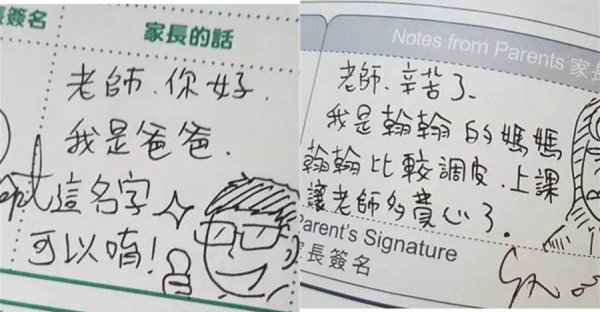 長簽名
家長的話
老師.你好.
我是爸爸.
這名字
可以唷!
Notes from Parents 家長
老師.辛苦了.
我是翰翰的媽媽
翰翰比較調皮.上課
讓老師多費心了。
Parent's Signature
長簽名